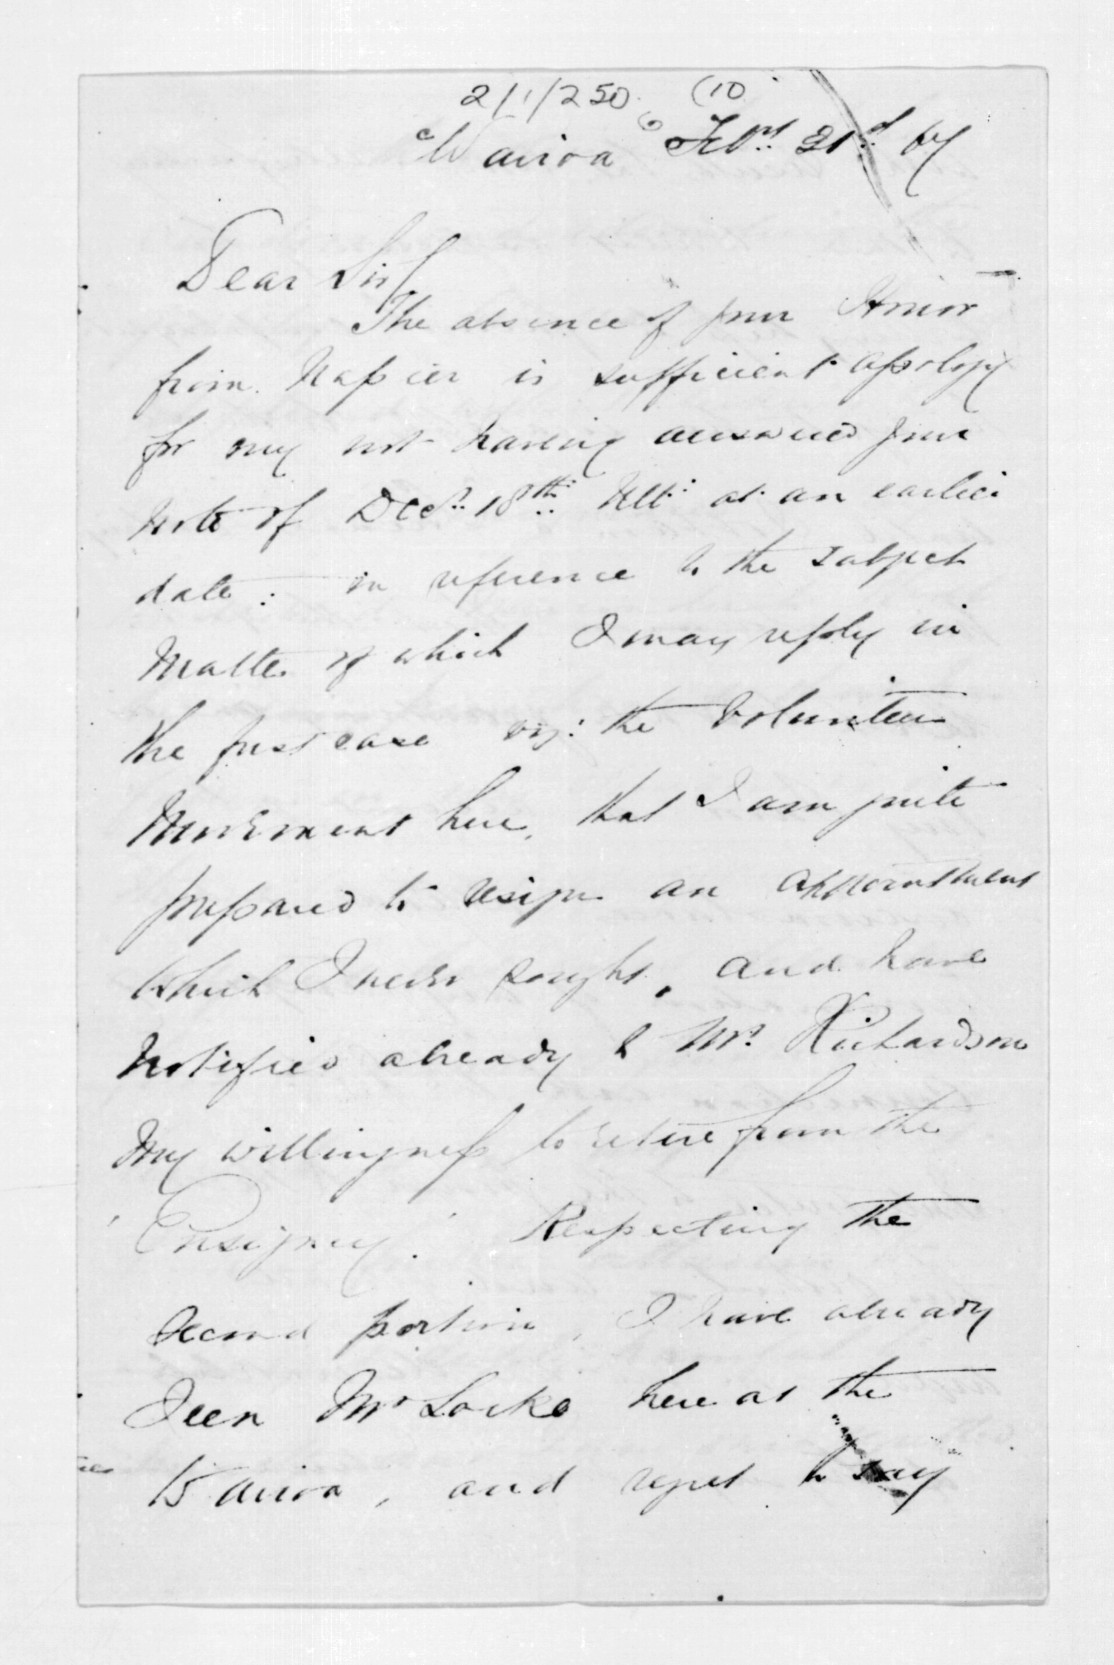 2/1/250 (10
Wairoa Feb. 21st 64
Dear Sir/
The absence of your Honor
from Napier is sufficient apology
for my not having answered your
note of Decr. 18th Ult: at an earlier
date: in reference to the subject
Matter of which I may reply in
the first case viz: the Volunteer
Movement here, that I am quite
prepared to resign an appointment
which I never sought, and have
notified already to Mr. Richardson
My willingness to retire from the
'Ensigncy'. Respecting the
Second portion, I have already
Seen Mr Locke here at the
Wairoa, and regret to say